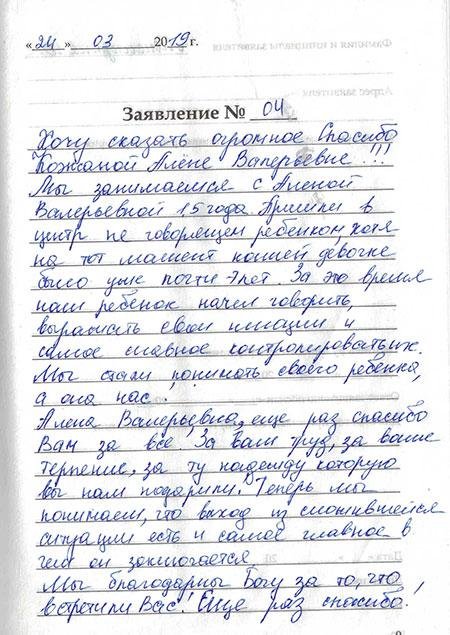 «24» 03 2019 г.
Заявление № 04
Хочу сказать огромное Спасибо
Кожаной Алёне Валерьевне!!!
Мы занимаемся с Аленой
Валерьевной 1,5 года Пришли в
центр не говорящем ребенком, хотя
на тот момент нашей девочке
было уже почти 7 лет. За это время
наш ребенок начел говорить,
выражать свои эмоции и
самое главное контролировать их.
Мы стали понимать своего ребенка,
а она нас!
Алена Валерьевна, еще раз спасибо
Вам за все. За ваш труд, за ваше
терпение, за ту надежду которую
вы нам подарили. Теперь мы
понимаем, что выход из сложившейся
ситуации есть и самое главное в
чем он заключается
Мы благодарны Богу за то, что
встретили Вас! Еще раз спасибо!